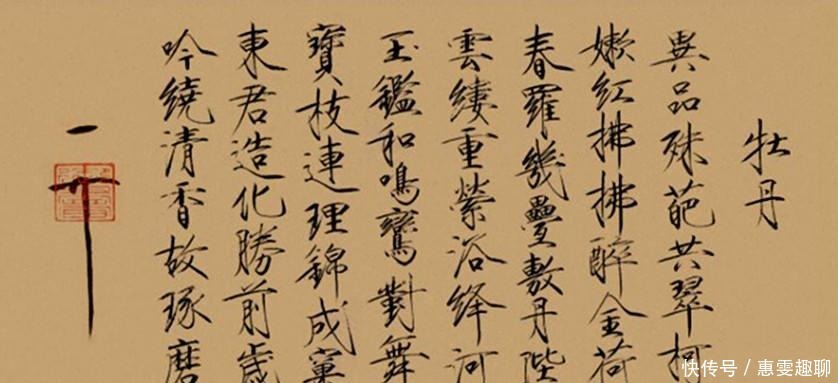 牡丹
異品殊葩共翠柯
嫩紅拂拂醉金荷
春羅幾疊敷丹陛
雲縷重縈浴絳河
玉鑑和鳴鸞對舞
寶枝連理錦成窠
東君造化勝前歲
吟繞清香故琢磨
快传号／惠雯趣聊